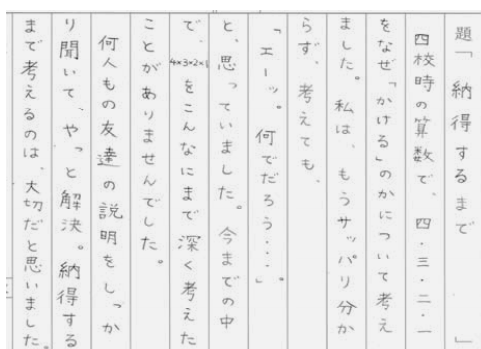 題「納得するまで」
四校時の算数で、四・三・二・一
をなぜ「かける」のかについて考え
ました。私は、もうサッパリ分か
らず、考えても、
「エーッ。何でだろう・・・」。
と、思っていました。今までの中
で、4×3×2×1をこんなにまで深く考えた
ことがありませんでした。
何人もの友達の説明をしっか
り聞いて、やっと解決。納得する
まで考えるのは、大切だと思いました。